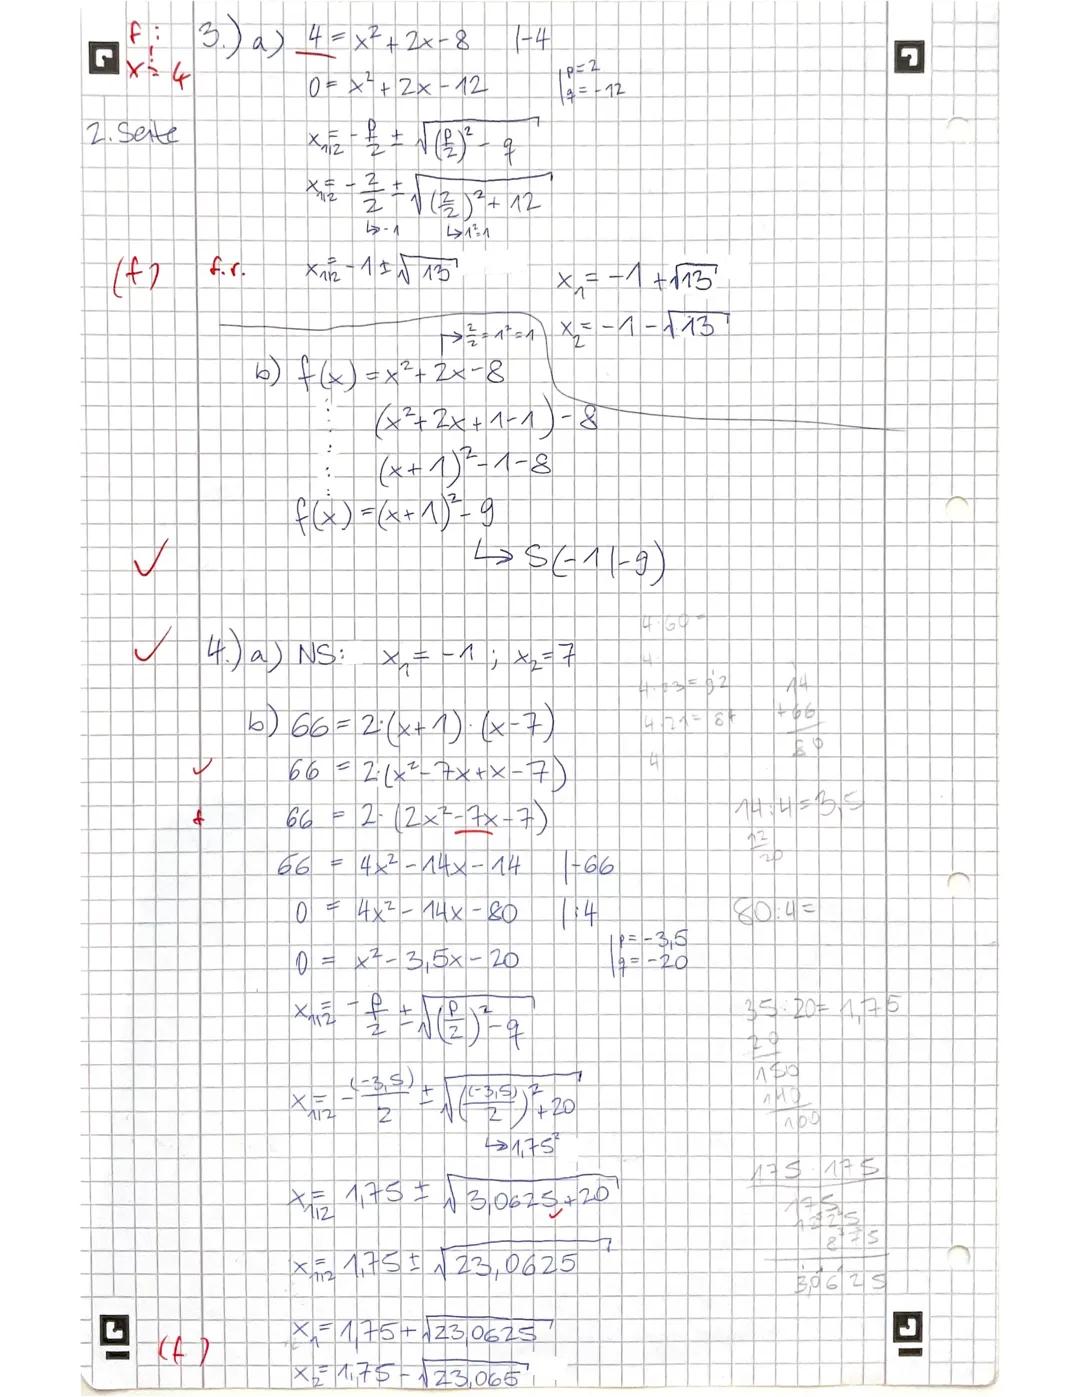 f: 3.) a) 4 = x² + 2x - 8 |-4
x = 4
0 = x² + 2x - 12 |p = 2
|q = -12
2. Seite
x₁/₂ = -p/2 ± √((p/2)² - q)
x₁/₂ = -2/2 ± √((2/2)² + 12)
↳ -1 ↳ 1² = 1
(f) f.r. x₁/₂ = -1 ± √13
x₁ = -1 + √13
x₂ = -1 - √13
→ 2/2 = 1² = 1
b) f(x) = x² + 2x - 8
(x² + 2x + 1 - 1) - 8
(x + 1)² - 1 - 8
f(x) = (x + 1)² - 9
↳ S(-1|-9)
✓
✓ 4.) a) NS: x₁ = -1 ; x₂ = 7
b) 66 = 2·(x+1)·(x-7)
✓ 66 = 2·(x² - 7x + x - 7)
f 66 = 2·(2x² - 7x - 7)
66 = 4x² - 14x - 14 |-66
0 = 4x² - 14x - 80 |:4
0 = x² - 3,5x - 20 |p = -3,5
|q = -20
x₁/₂ = -p/2 ± √((p/2)² - q)
x₁/₂ = -(-3,5)/2 ± √(((-3,5)/2)² + 20)
↳ 1,75²
x₁/₂ = 1,75 ± √3,0625 + 20
x₁/₂ = 1,75 ± √23,0625
x₁ = 1,75 + √23,0625
(f) x₂ = 1,75 - √23,065
4·60=
4
4·23=92
4·21=84
4
14
+66
80
14:4=3,5
12
20
80:4=
35:20=1,75
20
150
140
100
175·175
175
1225
875
30625